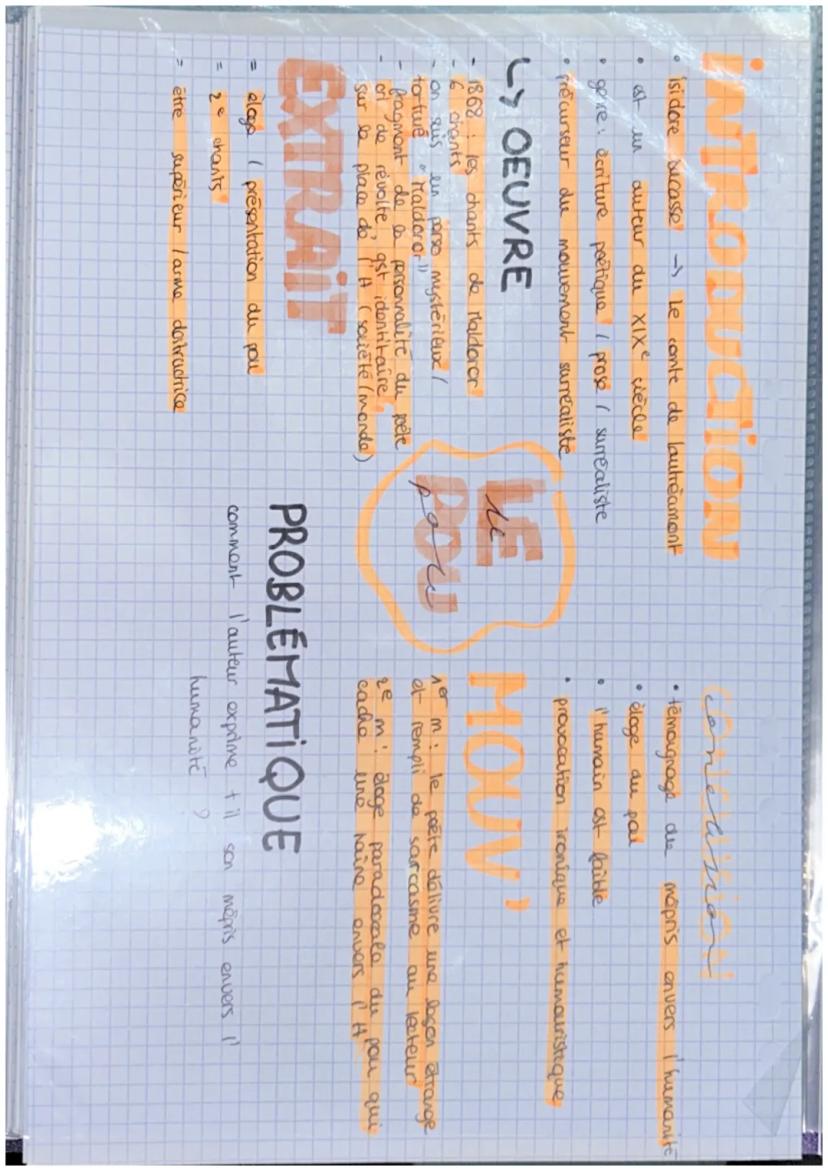 INTRODUCTION
• Isidore Ducasse → Le conte de Lautréamont
• est un auteur du XIXe siècle
• genre : écriture poétique / prose / surréaliste
• précurseur du mouvement surréaliste
↳ OEUVRE
- 1868 : les chants de Maldoror
- 6 chants
- on suis un perso mystérieux /
torturé "Maldoror"
- fragment de la personnalité du poète
- cri de révolte, qst identitaire,
sur la place de l'H (société/monde)
EXTRAIT
= éloge / présentation du pou
= 2e chants
= être supérieur / arme destructrice
LE
le
POU
pou
conclusion
• témoignage du mépris envers l'humanité
• éloge du pou
• l'humain est faible
• provocation ironique et humouristique
MOUV'
1er m : le poète délivre une leçon étrange
et rempli de sarcasme au lecteur
2e m : éloge paradoxale du pou qui
cache une haine envers l'H
PROBLÉMATIQUE
comment l'auteur exprime t il son mépris envers l'
humanité ?